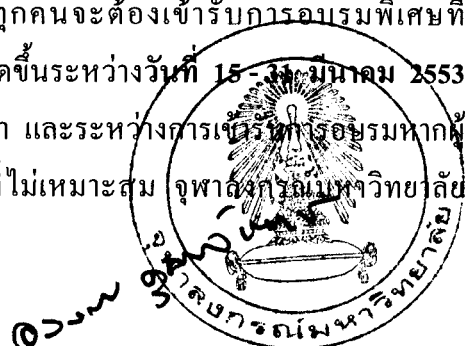 ทุกคนจะต้องเข้ารับการอบรมพิเศษที่
ดขึ้นระหว่างวันที่ 15 - 31 มีนาคม 2553
และระหว่างการเข้ารับการอบรมหากผู้
ไม่เหมาะสม จุฬาลงกรณ์มหาวิทยาลัย
จุฬาลงกรณ์มหาวิทยาลัย